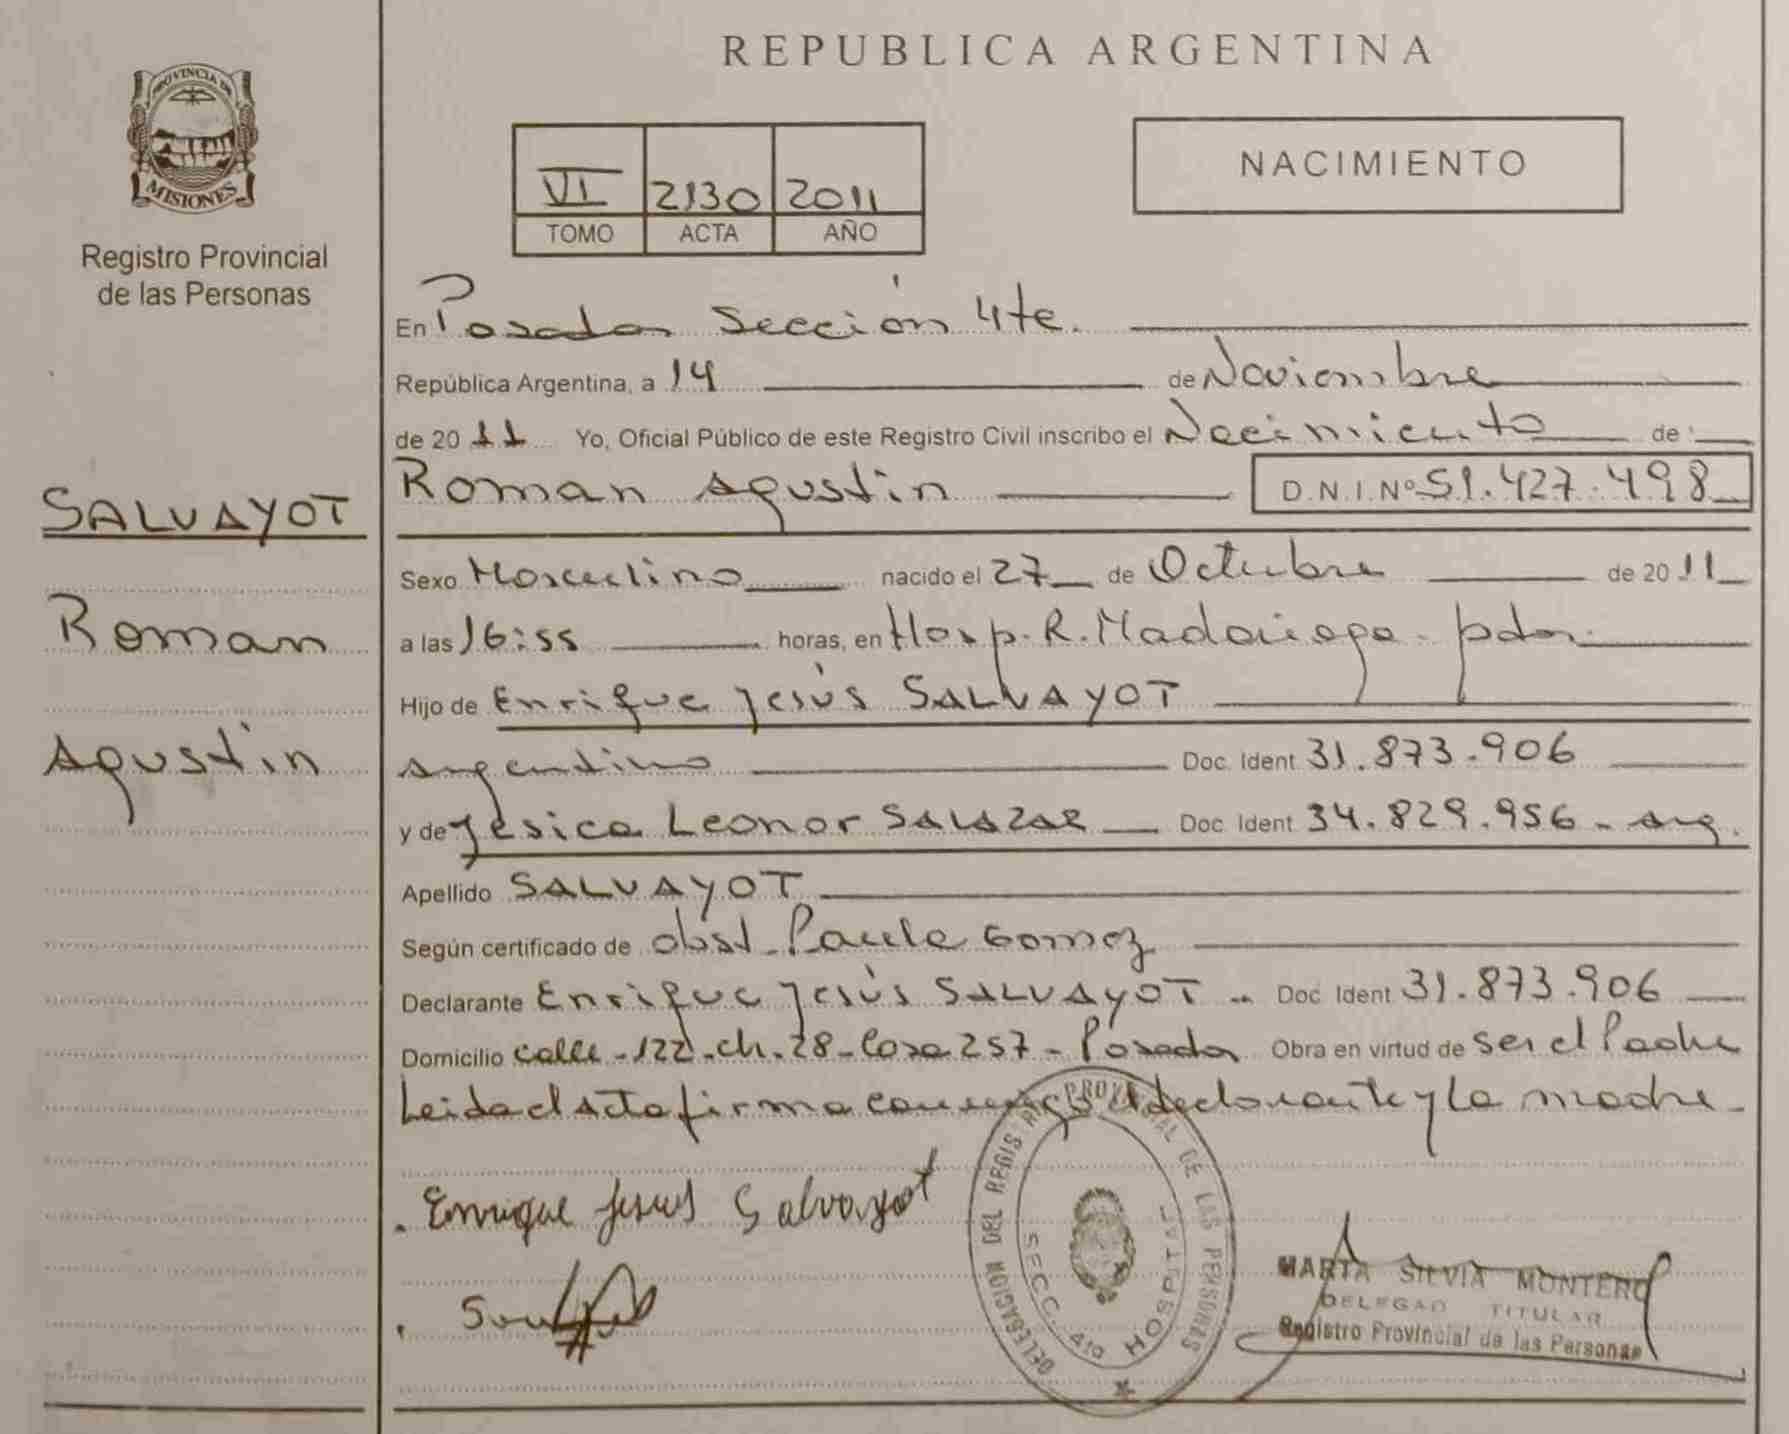 REPUBLICA ARGENTINA
PROVINCIA DE
MISIONES
Registro Provincial
de las Personas
VI 2130 2011
TOMO ACTA AÑO
NACIMIENTO
SALVAYOT
Roman
Agustin
En Posadas Sección 4te.
República Argentina, a 14 de Noviembre
de 2011 Yo, Oficial Público de este Registro Civil inscribo el Nacimiento de
Roman Agustin D.N.I.Nº 51.427.498
Sexo Masculino nacido el 27 de Octubre de 2011
a las 16:55 horas, en Hosp. R. Madariaga - pdas.
Hijo de Enrique Jesús SALVAYOT
argentino Doc. Ident 31.873.906
y de Jesica Leonor SALAZAR Doc. Ident 34.829.956 - arg.
Apellido SALVAYOT
Según certificado de obst. Paula Gomez
Declarante Enrique Jesús SALVAYOT - Doc Ident 31.873.906
Domicilio calle - 122 - ch. 28 - Casa 257 - Posadas Obra en virtud de ser el Padre
Leida el Acta firma conmigo el declarante y la madre -
Enrique Jesus Salvayot
DELEGACION DEL REGISTRO PROVINCIAL DE LAS PERSONAS
SECC. 4ta HOSPITAL
MARTA SILVIA MONTERO
DELEGAD TITULAR
Registro Provincial de las Personas